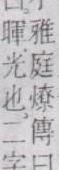 雅庭燎傳曰
暉光也二字